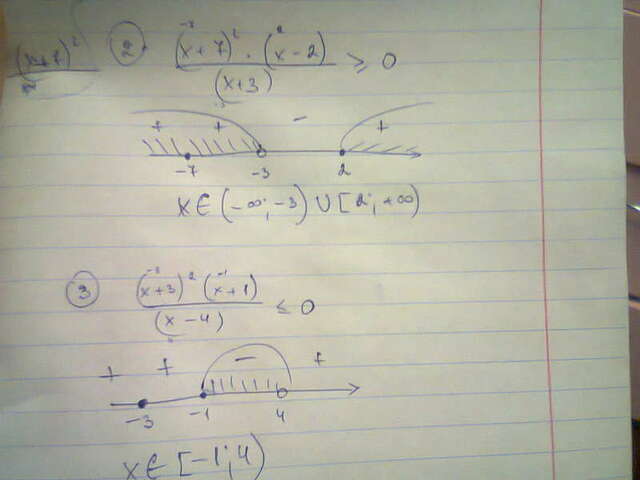 ② (x+7)² · (x-2) / (x+3) ≥ 0
-7 2
-3
+ + - +
-7 -3 2
x∈(-∞;-3)∪[2;+∞)
③ (x+3)² (x+1) / (x-4) ≤ 0
-3 -1
+ + - +
-3 -1 4
x∈[-1;4)